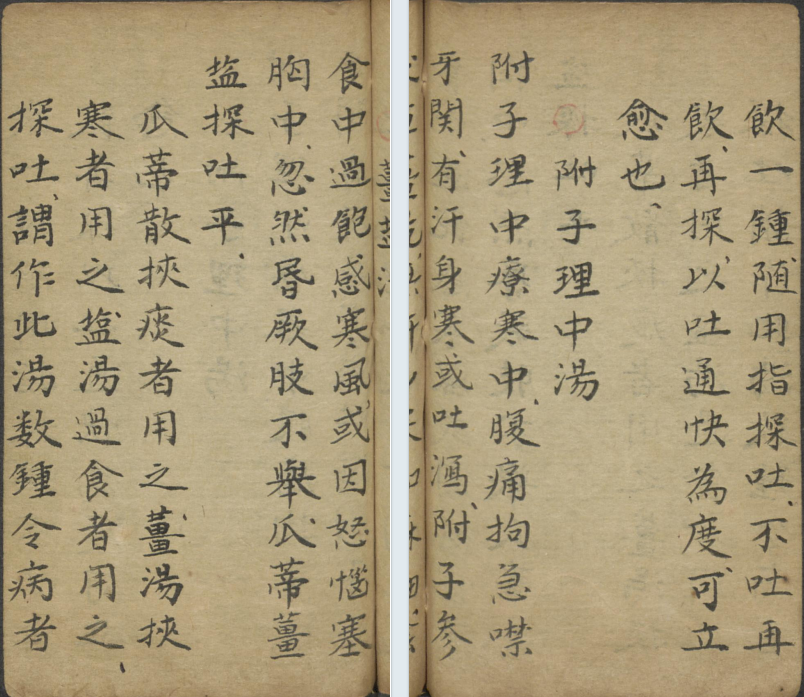 食中過飽感寒風或因怒惱塞
胸中忽然昬厥肢不舉瓜蒂薑
塩探吐平
瓜蒂散挾痰者用之薑湯挾
寒者用之塩湯過食者用之
探吐謂作此湯数鍾令病者
飲一鍾随用指探吐不吐再
飲再探以吐通快為度可立
愈也
附子理中湯
附子理中療寒中腹痛拘急噤
牙関有汗身寒或吐瀉附子参